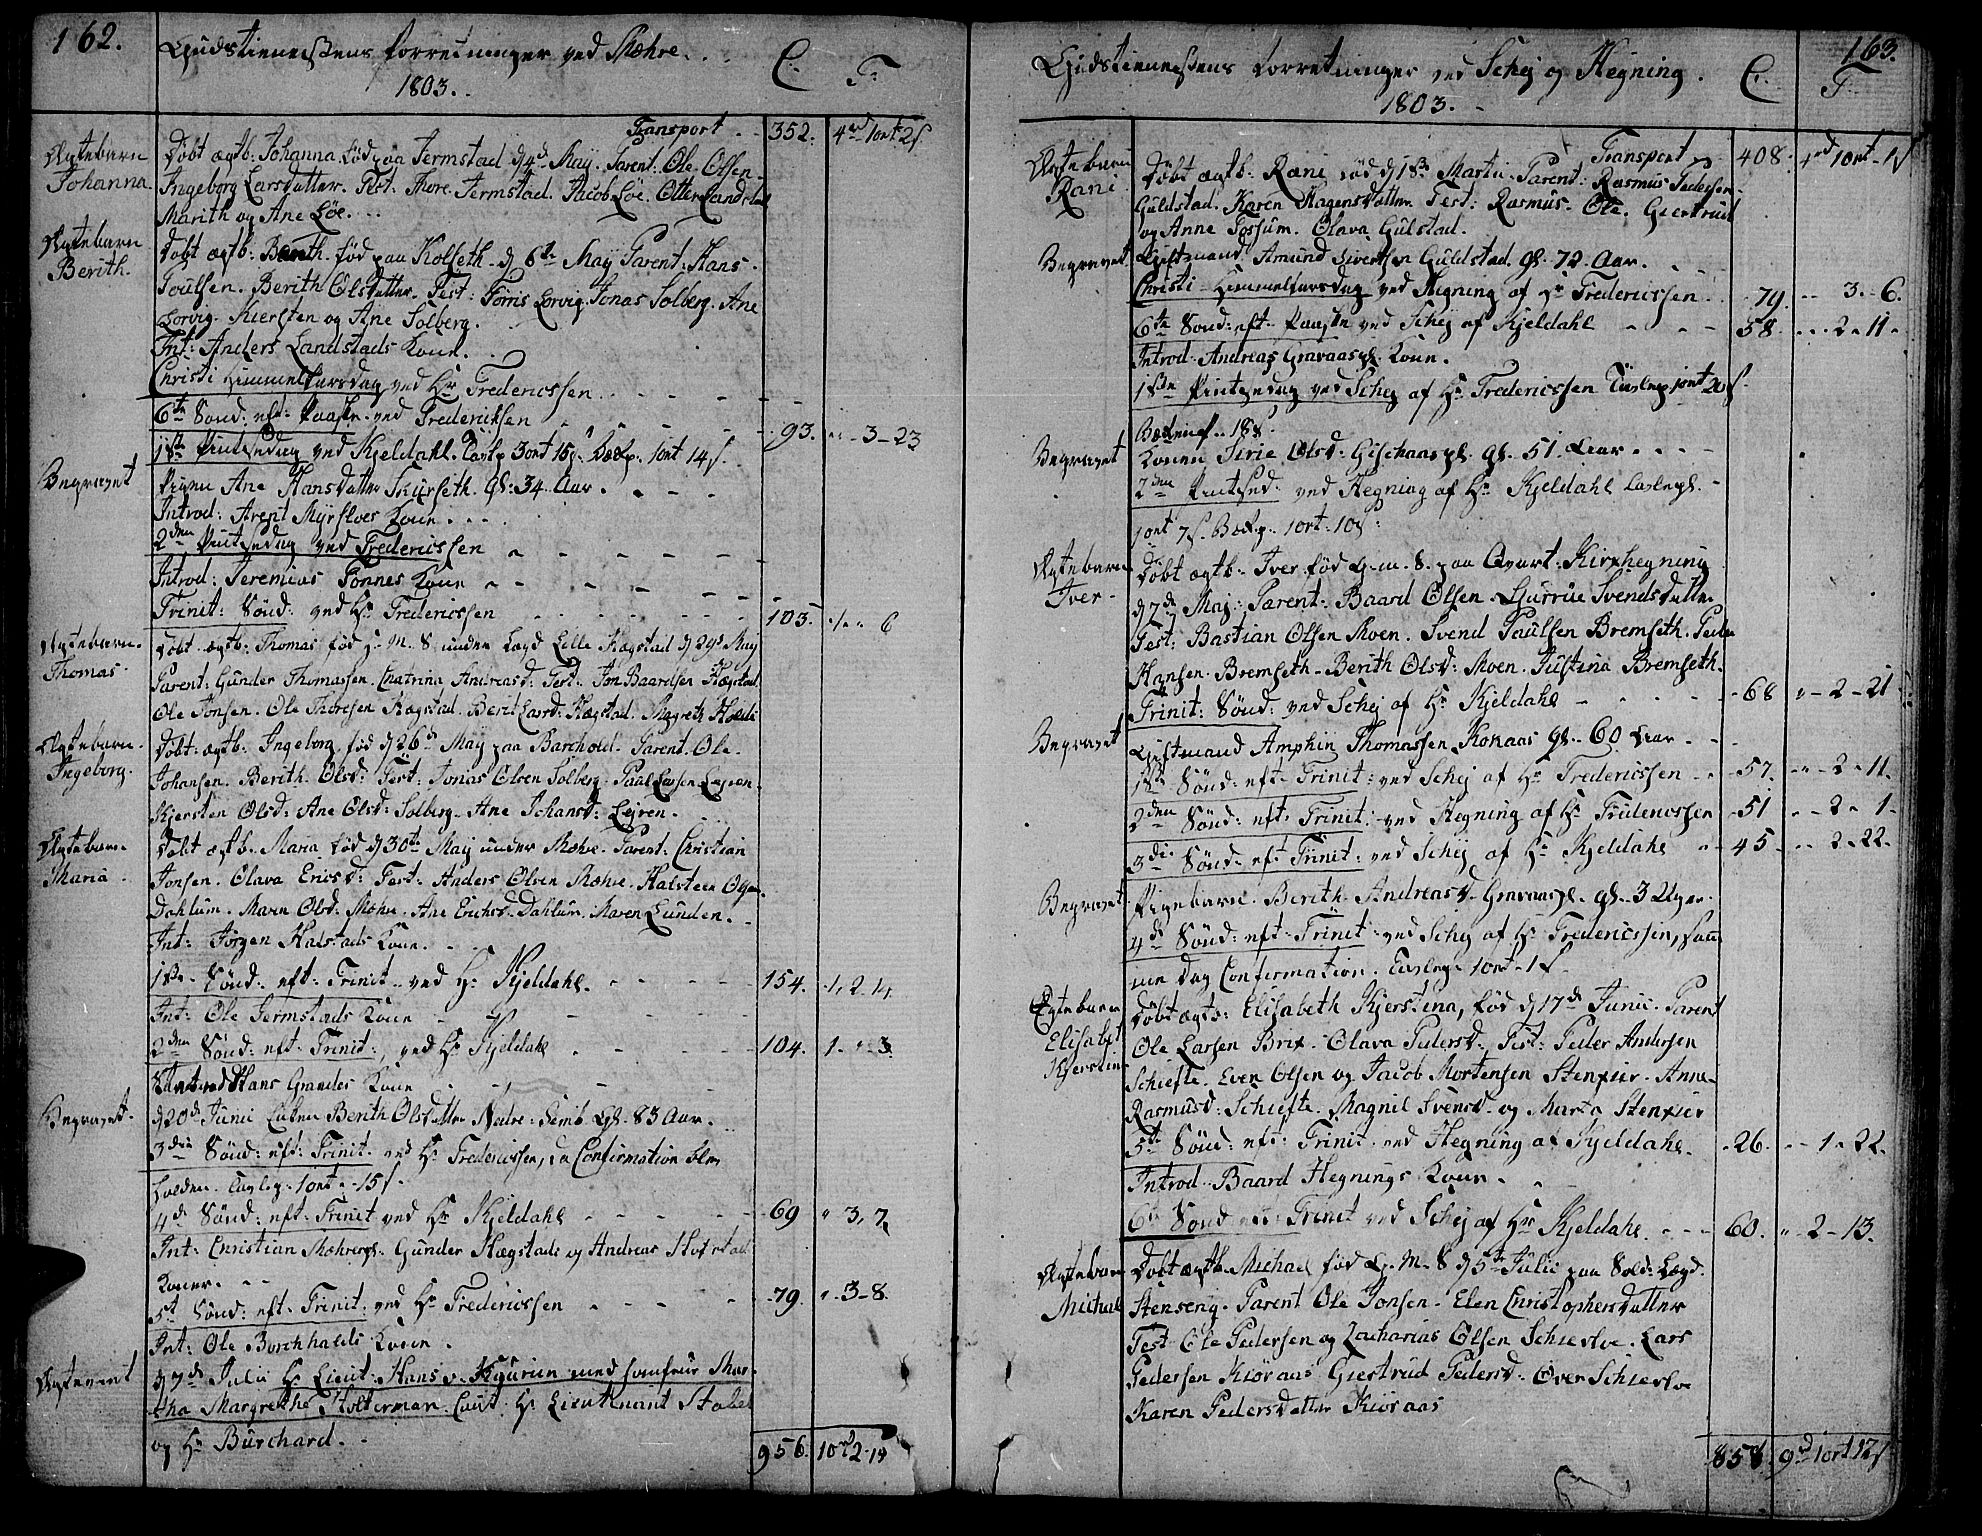 162.
Gudstienestens Forretninger ved Mæhre
1803.
C.
F.
Transport 352. 4rd 1ort 2s
Ægtebarn Johanna
Døbt ægtb: Johanna født paa Jermstad d 4d May. Parent: Ole Olsen.
Ingeborg Larsdatter. Test: Thore Jermstad. Jacob Løe. Otter Landstad
Marith og Ane Løe.
Ægtebarn Berith.
Døbt ægtb: Berith. født paa Kolseth d 6te May Parent: Hans
Poulsen. Berith Olsdatter. Test: Torris Lorvig. Jonas Solberg. Ane
Lorvig. Kiersten og Ane Solberg.
Int: Anders Landstads Kone.
Christi Himmelfarsdag ved Hr Fredericssen
6te Sønd: eft: Paaske ved Frederiksen 93. 3-23
1ste Pintsedag ved Kjeldahl. Tavlp 3ort 15s. Bækp. 1ort 14s.
Begravet
Pigen Ane Hansdatter Skurseth. gl: 34 Aar.
Introd: Arent Myrsloes Kone.
2den Pintsedag ved Fredericssen
Introd: Jeremias Tønnes Kone
Trinit: Sønd: ved Hr Fredericssen 103. 1. 6
Ægtebarn Thomas
Døbt ægtb: Thomas født g. M. S. under Lægd Lille Hægstad d 29d May
Parent: Gunder Thomassen. Chatrina Andreasd: Test: Jon Baardsen Hægstad
Ole Jonsen. Ole Thoresen Hægstad. Berit Larsd: Hægstad. Magreth
Ægtebarn Ingeborg.
Døbt: ægtb: Ingeborg født d 26d May paa Barchold. Parent. Ole
Johansen. Berith Olsd: Test: Jonas Olsen Solberg. Paal Larsen Lejren.
Kjersten Olsd: Ane Olsd: Solberg. Ane Johansd: Lejren.
Ægtebarn Maria
Døbt ægtb. Maria født d 30te May under Mæhre. Parent. Christian
Jonsen. Olava Ericsd: Test: Anders Olsen Mæhre. Halsteen Olsen
Dahlum. Maren Olsd. Mæhre. Ane Erichsd. Dahlum. Maren Lunden.
Int: Jørgen Halstads Kone.
1ste Sønd: eft: Trinit. ved Hr Kjeldahl. 154. 1. 2. 14
Int: Ole Jermstads Kone
2den Sønd: eft: Trinit: ved Hr Kjeldahl 104. 1. 3.
Hans Grandes Kone
Begravet
d 20d Junii Enken Berith Olsdatter gl. 83 Aar.
3die Sønd: eft: Trinit. ved Hr Fredericssen, da Confirmation blev
holden. Tavlep. 1ort 15s.
4d Sønd: eft: Trinit ved Hr Kjeldahl 69 3, 7.
Int: Christian Mæhrespl. Gunder Hægstads og Andreas
Koner.
5t Sønd: eft: Trinit: ved Hr Fredericssen 79. 3-8.
Int: Ole Borchholds Kone.
Ægteviet
d 7d Julii Hr Lieut: Hans v. med Jomfrue Mar-
tha Margrethe Stolterman. Caut. Hr Lieutenant
og Hr Burchard.
956. 10rd 2-19
163.
Gudstienestens Forretninger ved Schej og Hegning.
1803.
C.
F.
Transport 408. 4rd 1ort 1s
Ægtebarn Rani
Døbt ægtb. Rani født d 18de Martii. Parent: Rasmus Pedersen
Guldstad. Karen Hagensdatter. Test: Rasmus. Ole. Giertrud
og Anne Fossum. Olava Gulstad.
Begravet
Giftmand Amund Sivertsen Guldstad. gl. 72 Aar.
Christi Himmelfarsdag ved Hegning af Hr Fredericssen 79. 3. 6.
6te Sønd: eft: Paaske ved Schej af Kjeldahl 58. 2-11.
Introd. Andreas Gravaaspl. Kone.
1ste Pintsedag ved Schej af Hr Fredericssen Tavlep 1ort 20s.
Bækenp. 18s.
Begravet
Konen Sirie Olsd: gl. 51 Aar.
2den Pintsed: ved Hegning af Hr Kjeldahl Tavlepl.
1ort 7s. Bækp. 1ort 10s.
Ægtebarn Iver
Døbt ægtb. Iver født g. m. S. paa Qvart. Kirkhegning
d 7d Maj. Parent: Baard Olsen. Gurrue Svendsdatter
Test: Bastian Olsen Moen. Svend Paulsen Bremseth. Peder
Hansen Bremseth. Berith Olsd: Moen. Justina Bremseth.
Trinit: Sønd: ved Schej af Hr Kjeldahl 68 2-21
Begravet
Giftmand Amphin Thomassen Konaas gl. 60 Aar.
1ste Sønd: eft: Trinit: ved Schej af Hr Fredericssen 57. 2-11.
2den Sønd: eft: Trinit: ved Hegning af Hr Fredericssen 51 2-1.
3die Sønd: eft Trinit: ved Schej af Hr Kjeldahl 45 2-22.
Begravet
Pigebarn Berith Andreasd Gravaaspl. gl. 3 Uger.
4d Sønd: eft: Trinit: ved Schej af Hr Fredericssen, samme
Dag Confirmation. Tavlep. 1ort-1s.
Ægtebarn Elisabet Kjerstin
Døbt ægtb: Elisabeth Kjerstina, født d 17d Junii. Parent
Ole Larsen Brix. Olava Pedersd. Test: Peder Andersen
Schiefte. Even Olsen og Jacob Mortensen Stenkier. Anne
Rasmusd: Schiefte. Magnil Svensd. og Marta Stenkier
5t Sønd: eft: Trinit. ved Hegning af Kjeldahl. 26. 1-22.
Introd. Baard Hegnings Kone.
6te Sønd eft: Trinit ved Schej af Hr Kjeldahl. 60. 2-13.
Ægtebarn Michael
Døbt ægtb. Michael født g. M. S d 5te Julii paa Sold: Lægd.
Stenseng. Parent Ole Jonsen. Elen Christophersdatter
Test Ole Pedersen og Zacharias Olsen Schiesloe. Lars
Pedersen Kiøraas Giertrud Pedersd: Schiesloe
Karen Pedersdatter Kiøraas
858. 9rd 1ort 12s